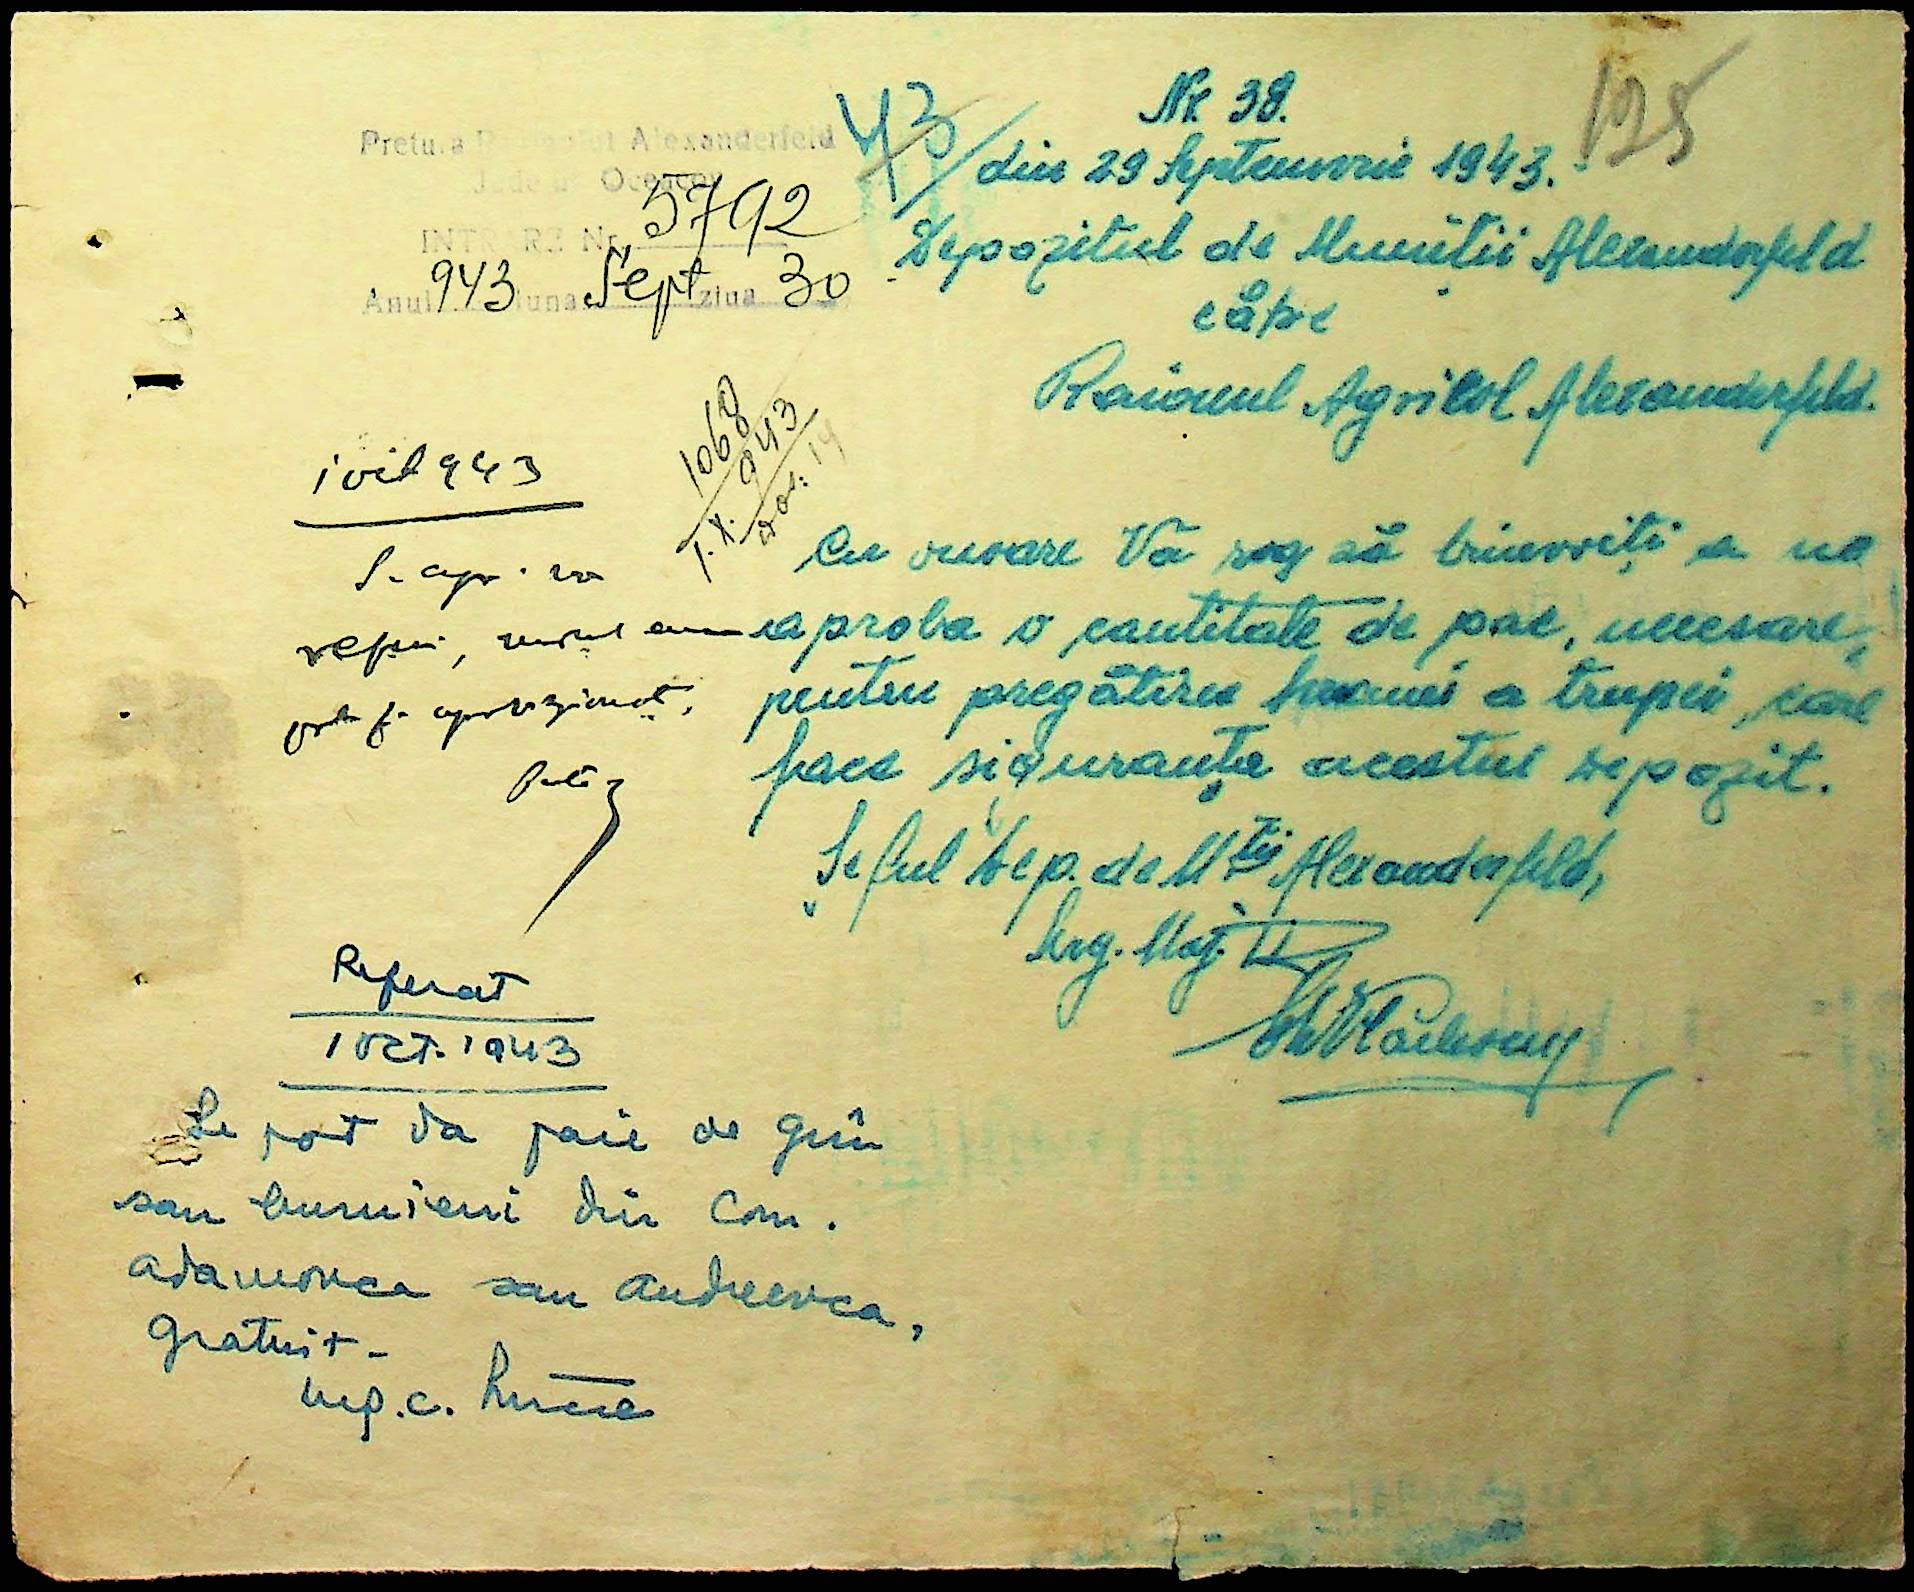 Nr. 38.
43 / din 29 Septemvrie 1943.
125
Pretura Raionului Alexanderfeld
Județul Oceacov
INTRARE Nr. 5792
Anul 943 luna Sept ziua 30
Depozitul de Muniții Alexanderfeld
către
Raionul Agricol Alexanderfeld.
1068
943
1.X.
Dos: 14
1 Oct 943
Cu onoare Vă rog să binevoiți a ne
aproba o cantitate de pae, necesare,
pentru pregătirea hranei a trupei, care
face siguranța acestui depozit.
Șeful Dep. de M-ții Alexanderfeld,
Srg. Maj. II
Referat
1 Oct. 1943
Se pot da paie de grîu
sau buruieni din Com.
Adamovca sau Andreevca,
gratuit -